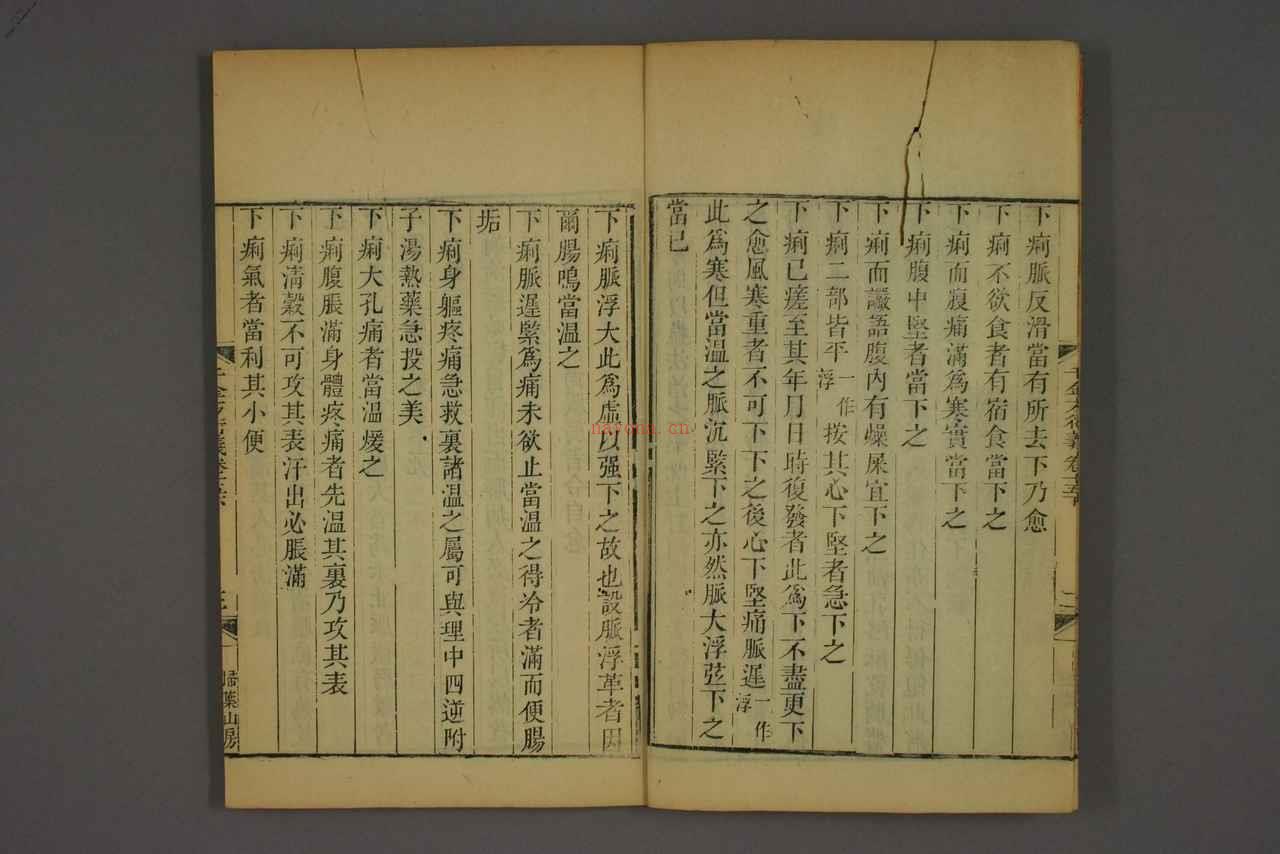 下痢脈反滑當有所去下乃愈
下痢不欲食者有宿食當下之
下痢而腹痛滿爲寒實當下之
下痢腹中堅者當下之
下痢而讝語腹內有燥屎宜下之
下痢二部皆平一作浮按其心下堅者急下之
下痢已瘥至其年月日時復發者此爲下不盡更下
之愈風寒重者不可下下之後心下堅痛脈遲一作浮
此爲寒但當溫之脈沉緊下之亦然脈大浮弦下之
當已
下痢脈浮大此爲虛以强下之故也設脈浮革者因
爾腸鳴當溫之
下痢脈遲緊爲痛未欲止當溫之得冷者滿而便腸
垢
下痢身軀疼痛急救裏諸溫之屬可與理中四逆附
子湯熱藥急投之美
下痢大孔痛者當溫煖之
下痢腹脹滿身體疼痛者先溫其裏乃攻其表
下痢淸穀不可攻其表汗出必脹滿
下痢氣者當利其小便
千金方衍義卷
三
掃葉山房
nayona.cn